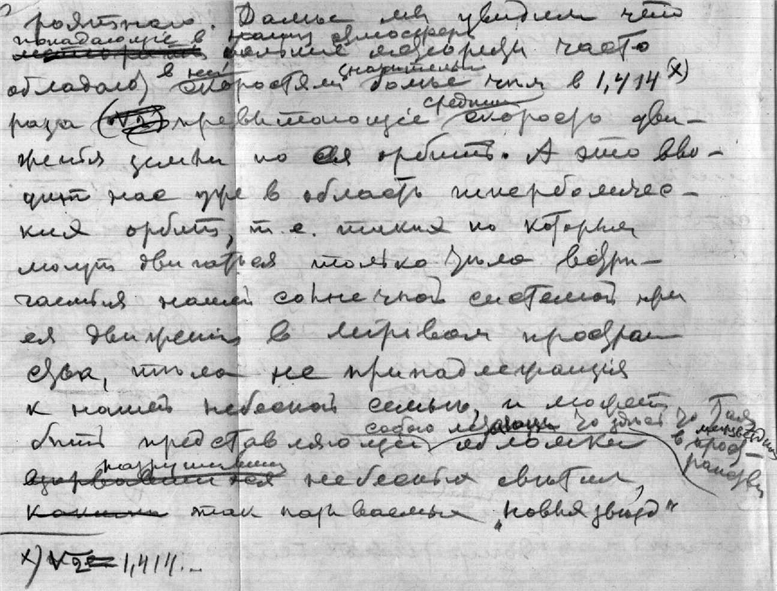 роятного. Дальше мы увидим что
попадающие в нашу атмосферу
большие метеориты часто
обладают в ней скоростями значительно больше чем в 1,414 х)
раза превышающие среднюю скорость дви-
жения земли по ея орбите. А это вво-
дит нас уже в область гиперболичес-
ких орбит, т.е. таких по которым
могут двигаться только тела встре-
чаемыя нашей солнечной системой при
ея движении в мировом простран
ства, тела не принадлежащия
к нашей небесной семье, и может
быть представляющия собою обломки
небесных светил,
так называемых „новых звезд"
х) √2 = 1,414...